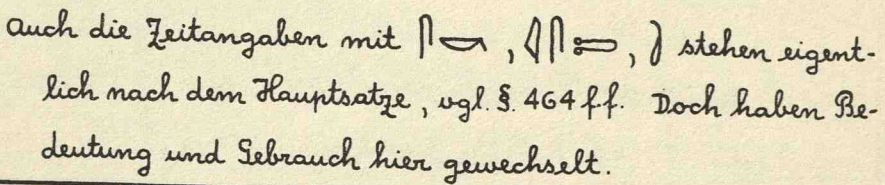 auch die Zeitangaben mit 𓋴𓎡, 𓇋𓋴𓍿, 𓍘 stehen eigent-
lich nach dem Hauptsatze, vgl. §. 464 ff. Doch haben Be-
deutung und Gebrauch hier gewechselt.